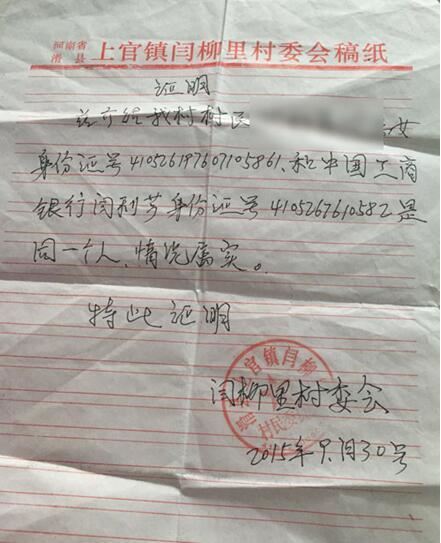 河南省
滑县 上官镇闫柳里村委会稿纸
证明
兹介绍我村村民 女
身份证号410526197607105861、和中国工商
银行闫利芳身份证号4105267610582是
同一个人、情况属实。
特此证明
闫柳里村委会
2015年9月30号